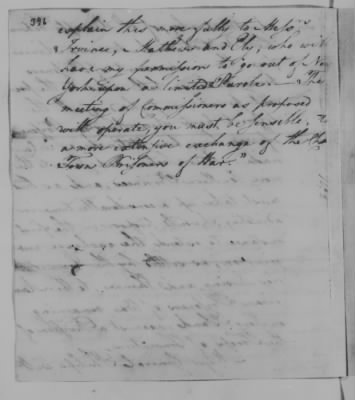 396
explain this more fully to Mess.rs
Irvine, Mathews and Ely, who will
have my permission to go out of New
York upon a limited Parole. The
meeting of Commissioners as proposed
will operate, you must be sensible, to
a more extensive exchange of the Cha
Town Prisoners of War."